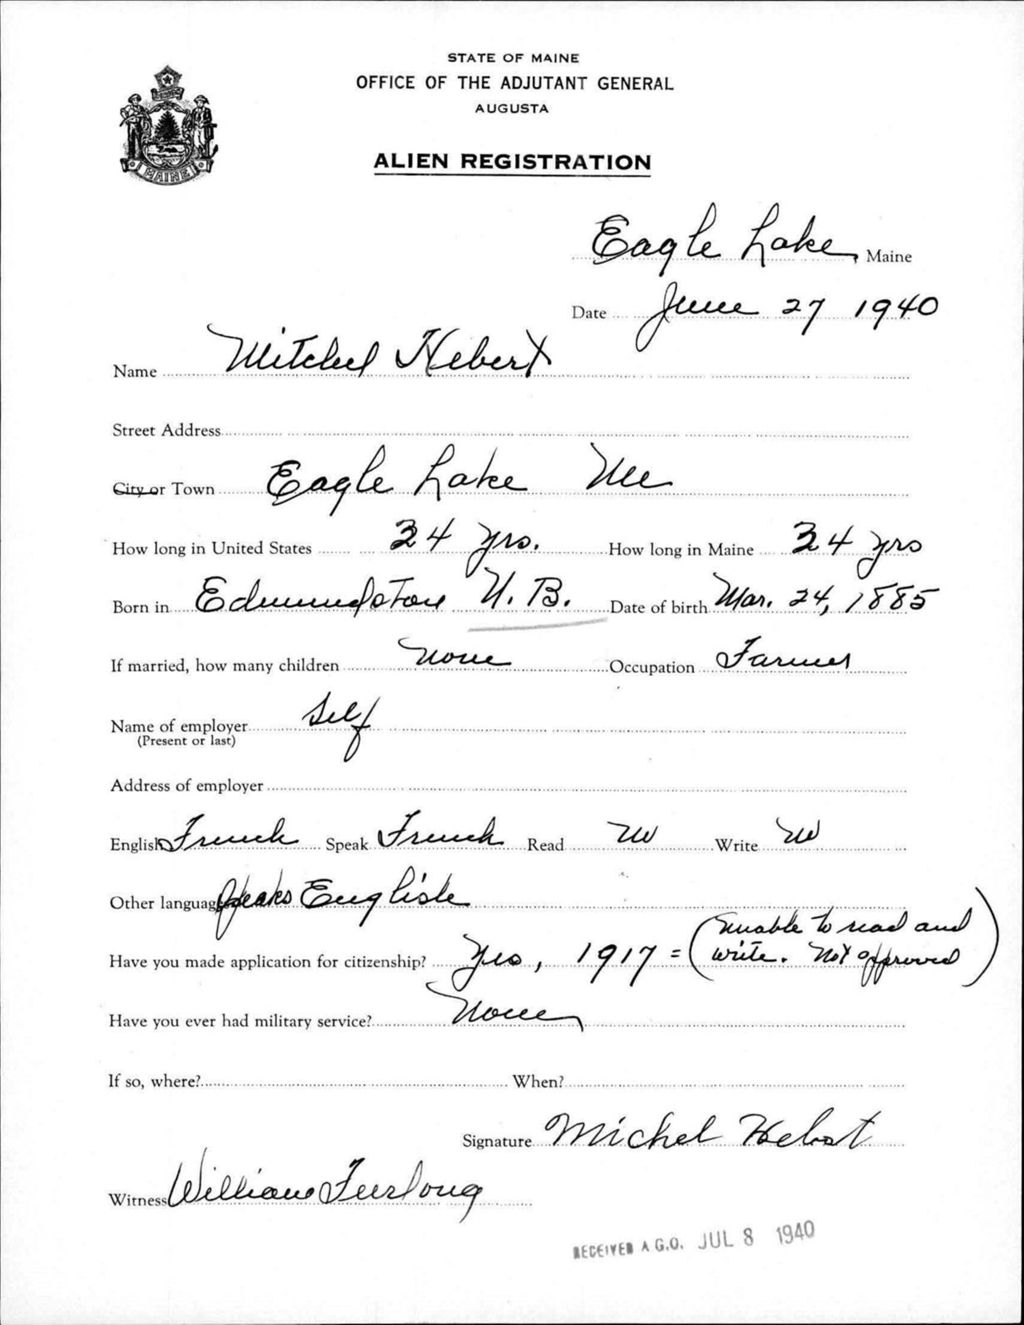 STATE OF MAINE
OFFICE OF THE ADJUTANT GENERAL
AUGUSTA
ALIEN REGISTRATION
MAINE
Eagle Lake, Maine
Date June 27 1940
Name Mitchel Hebert
Street Address
City or Town Eagle Lake Me
How long in United States 34 yrs. How long in Maine 34 yrs
Born in Edmundston N. B. Date of birth Mar. 24, 1885
If married, how many children None Occupation Farmer
Name of employer Self
(Present or last)
Address of employer
English French Speak French Read No Write No
Other languages Speaks English
Have you made application for citizenship? Yes, 1917 = (unable to read and write. Not approved)
Have you ever had military service? None
If so, where? When?
Signature Michel Hebert
Witness William Furlong
RECEIVED A.G.O. JUL 8 1940